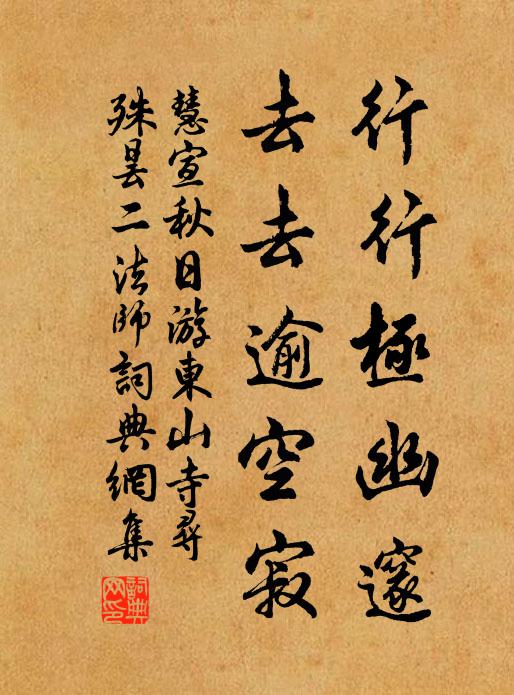 行行極幽邃
去去逾空寂
慧宣秋日游東山寺尋
殊曇二法師詞典網集
詞典网印